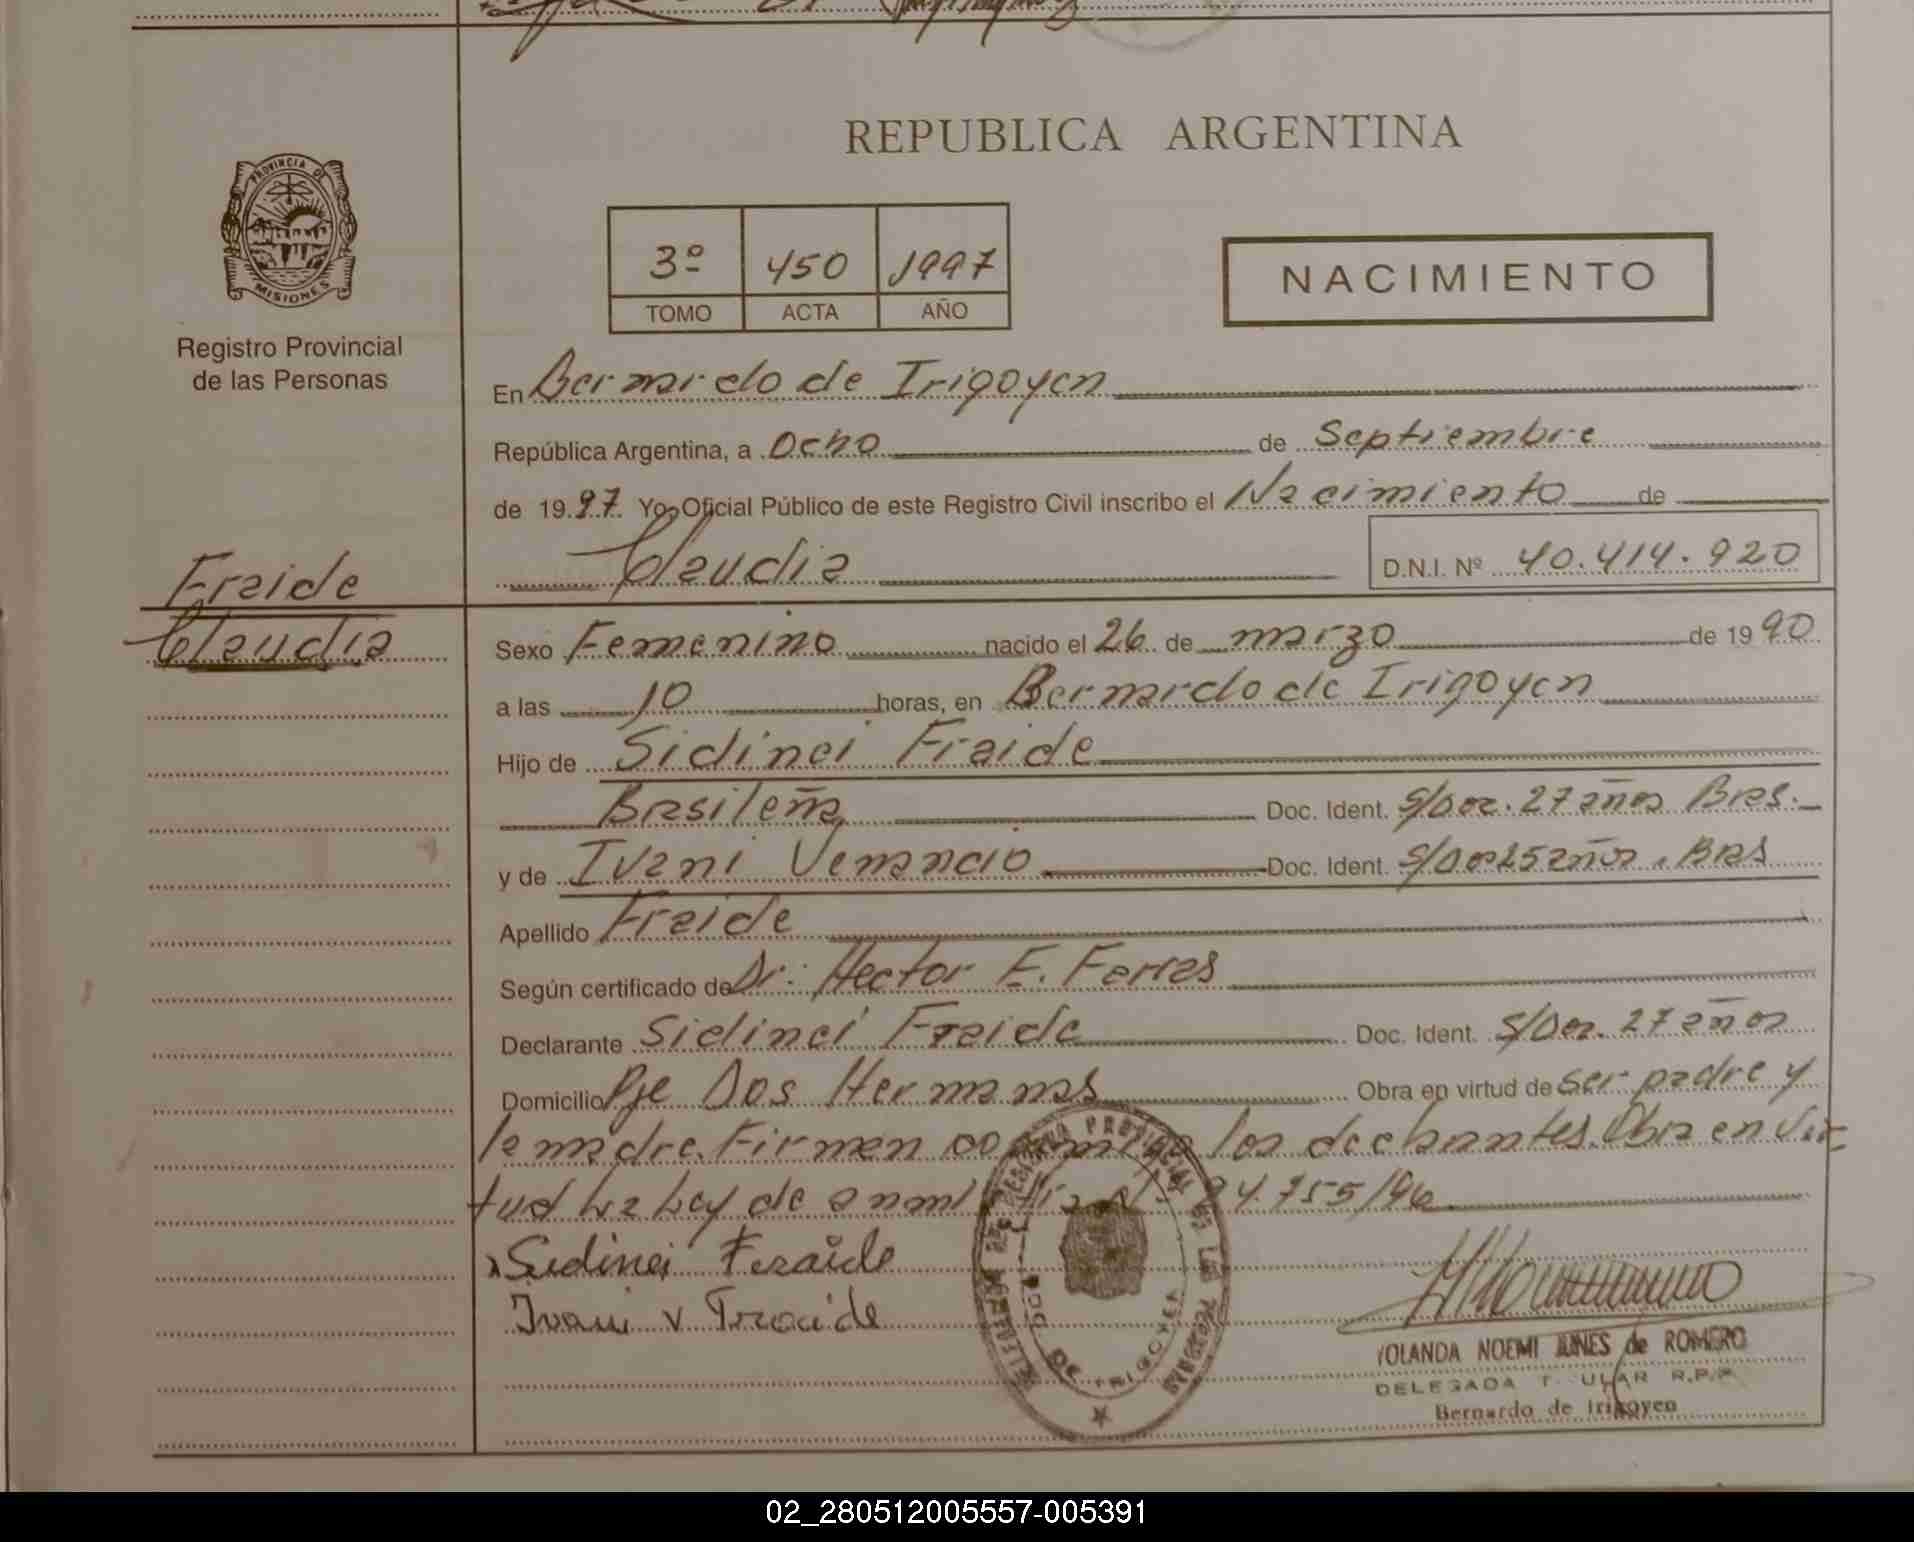 REPUBLICA ARGENTINA
PROVINCIA DE
MISIONES
Registro Provincial
de las Personas
3º 450 1997
TOMO ACTA AÑO
NACIMIENTO
En Bernardo de Irigoyen
República Argentina, a Ocho de Septiembre
de 1997 Yo, Oficial Público de este Registro Civil inscribo el Nacimiento de
Claudia D.N.I. Nº 40.414.920
Fraide
Claudia
Sexo Femenino nacido el 26 de marzo de 1990
a las 10 horas, en Bernardo de Irigoyen
Hijo de Sidinei Fraide
Brasileña Doc. Ident. S/Doc. 27 años Bras.
y de Ivani Venancio Doc. Ident. S/Doc 25 años. Bras
Apellido Fraide
Según certificado de Dr: Hector E. Ferras
Declarante Sidinei Fraide Doc. Ident. S/Doc. 27 años
Domicilio Pje Dos Hermanas Obra en virtud de ser padre y
la madre. Firman como los declarantes. Obra en Vir-
tud La Ley de 24.755/96
Sidinei Fraide
Ivani v Fraide
REGISTRO PROVINCIAL DE LAS PERSONAS
BDO. DE IRIGOYEN
YOLANDA NOEMI de ROMERO
DELEGADA R.P.P.
Bernardo de Irigoyen
02_280512005557-005391